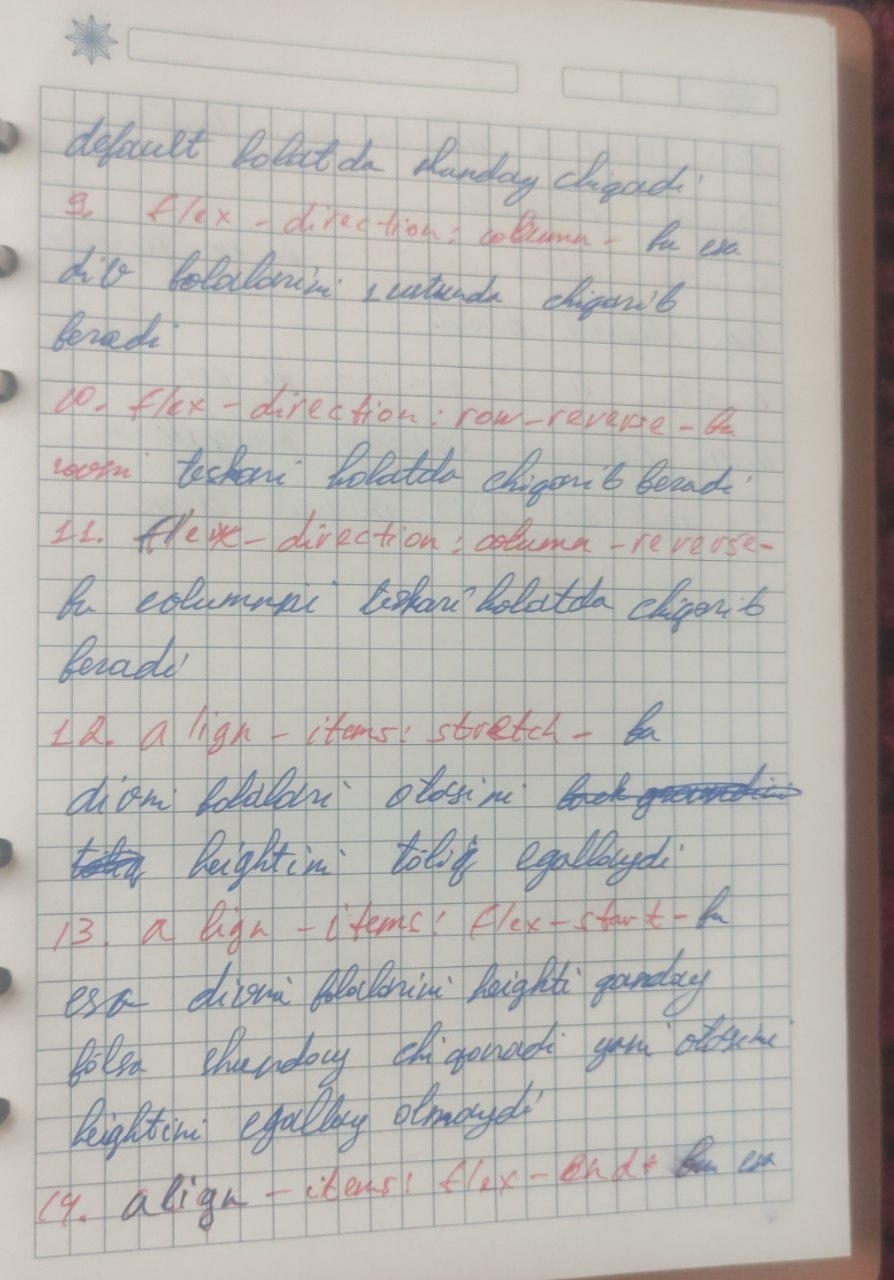 default holatda shunday chiqadi
9. flex-direction: column - bu esa
div bolalarini ustunda chiqarib
beradi
10. flex-direction: row-reverse - bu
rowni teskari holatda chiqarib beradi
11. flex-direction: column-reverse-
bu columnni teskari holatda chiqarib
beradi
12. align-items: stretch - bu
divni bolalari otasini
heightini tòliq egallaydi
13. align-items: flex-start - bu
esa divni bolalarini heighti qanday
bòlsa shunday chiqaradi yani otasini
heightini egallay olmaydi
14. align-items: flex-end - bu esa